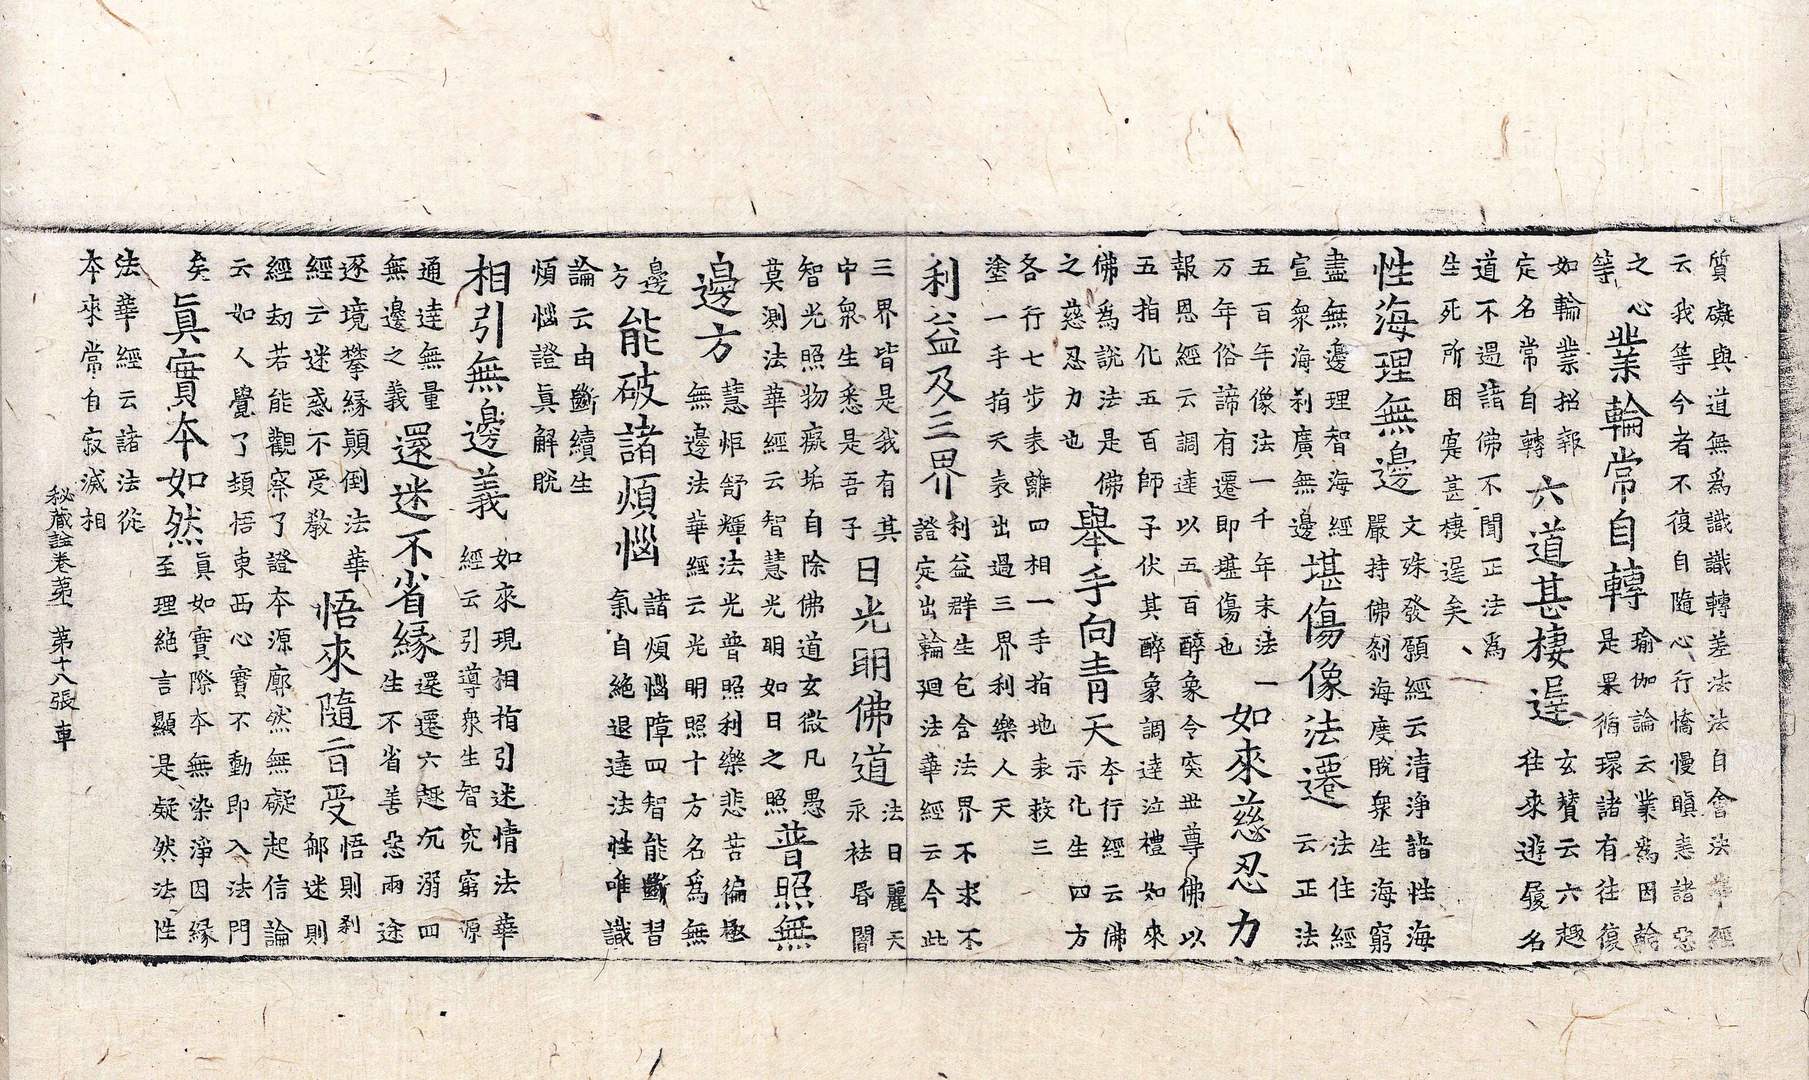 質礙與道無爲識識轉差法法自會法華經
云我等今者不復自隨心行憍慢瞋恚諸惡
之心
等
業輪常自轉
瑜伽論云業爲因輪
是果循環諸有往復
如輪業招報
定名常自轉
六道甚棲遑
玄贊云六趣
往來遊履名
道不過諸佛不聞正法爲
生死所困寔甚棲遑矣
性海理無邊
文殊發願經云清淨諸性海
嚴持佛刹海度脫衆生海窮
盡無邊理智海經
宣衆海刹廣無邊
堪傷像法遷
法住經
云正法
五百年像法一千年末法一
万年俗諦有遷即堪傷也
如來慈忍力
報恩經云調達以五百醉象令突世尊佛以
五指化五百師子伏其醉象調達泣禮如來
佛爲說法是佛
之慈忍力也
舉手向青天
本行經云佛
示化生四方
各行七步表離四相一手指地表救三
塗一手指天表出過三界利樂人天
利益及三界
利益群生包含法界不求不
證定出輪廻法華經云今此
三界皆是我有其
中衆生悉是吾子
日光明佛道
法日麗天
永祛昏闇
智光照物癡垢自除佛道玄微凡愚
莫測法華經云智慧光明如日之照
普照無
邊方
慧炬舒輝法光普照利樂悲苦徧極
無邊法華經云光明照十方名爲無
邊
方
能破諸煩惱
諸煩惱障四智能斷習
氣自絶退達法性唯識
論云由斷續生
煩惱證眞解脫
相引無邊義
如來現相指引迷情法華
經云引導衆生智究窮源
通達無量
無邊之義
還迷不省緣
還遷六趣沉溺四
生不省善惡兩途
逐境攀緣顛倒法華
經云迷惑不受敎
悟來隨旨受
悟則剎
邮迷則
經劫若能觀察了證本源廓然無礙起信論
云如人覺了頓悟東西心實不動即入法門
矣
眞實本如然
眞如實際本無染淨因緣
至理絶言顯是凝然法性
法華經云諸法從
本來常自寂滅相
秘藏詮卷第 第十八張 車